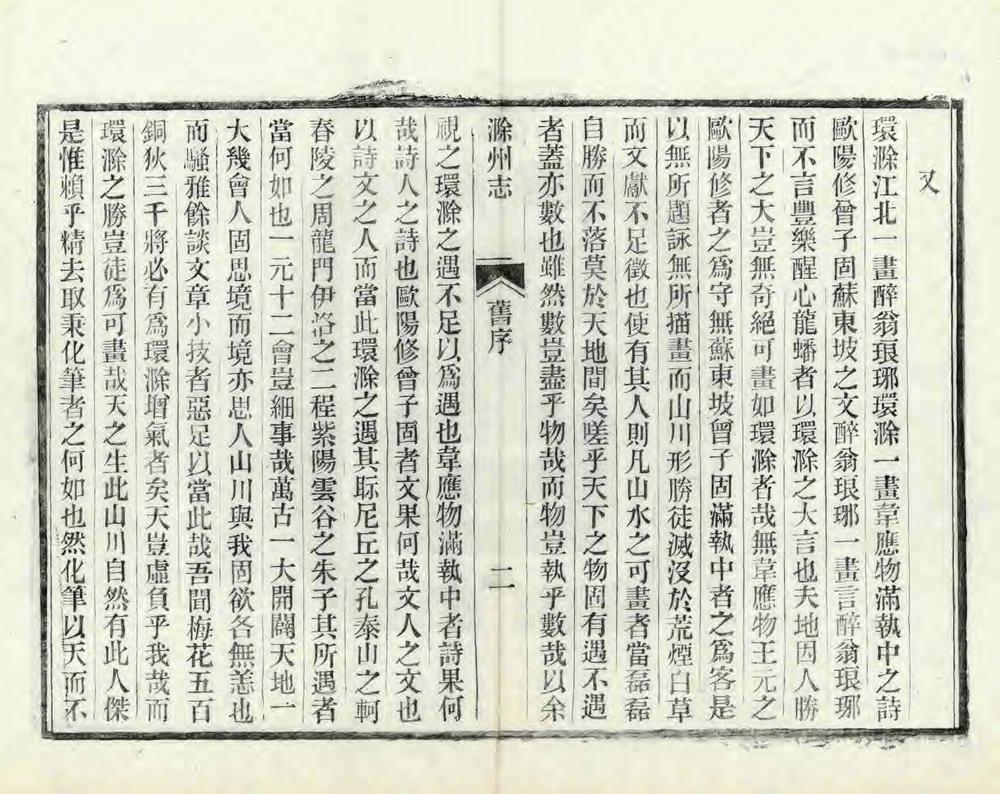 又
環滁江北一畫醉翁琅琊環滁一畫韋應物滿執中之詩
歐陽修曾子固蘇東坡之文醉翁琅琊一畫言醉翁琅琊
而不言豐樂醒心龍蟠者以環滁之大言也夫地因人勝
天下之大豈無奇絕可畫如環滁者哉無韋應物王元之
歐陽修者之爲守無蘇東坡曾子固滿執中者之爲客是
以無所題詠無所描畫而山川形勝徒滅沒於荒煙白草
而文獻不足徵也使有其人則凡山水之可畫者當磊磊
自勝而不落莫於天地間矣嗟乎天下之物固有遇不遇
者蓋亦數也雖然數豈盡乎物哉而物豈執乎數哉以余
滁州志
舊序
二
視之環滁之遇不足以爲遇也韋應物滿執中者詩果何
哉詩人之詩也歐陽修曾子固者文果何哉文人之文也
以詩文之人而當此環滁之遇其眎尼丘之孔泰山之軻
春陵之周龍門伊洛之二程紫陽雲谷之朱子其所遇者
當何如也一元十二會豈細事哉萬古一大開闢天地一
大幾會人固思境而境亦思人山川與我固欲各無恙也
而騷雅餘談文章小技者惡足以當此哉吾聞梅花五百
銅狄三千將必有爲環滁增氣者矣天豈虛負乎我哉而
環滁之勝豈徒爲可畫哉天之生此山川自然有此人傑
是惟賴乎精去取秉化筆者之何如也然化筆以天而不